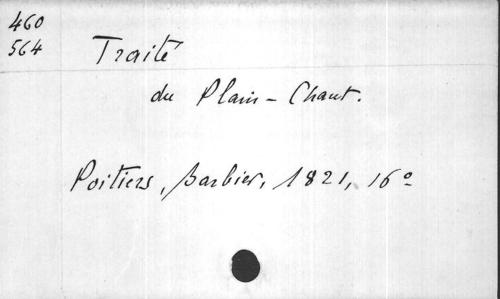 460
564
Traité
du Plain-Chant.
Poitiers, Barbier, 1821, 16°